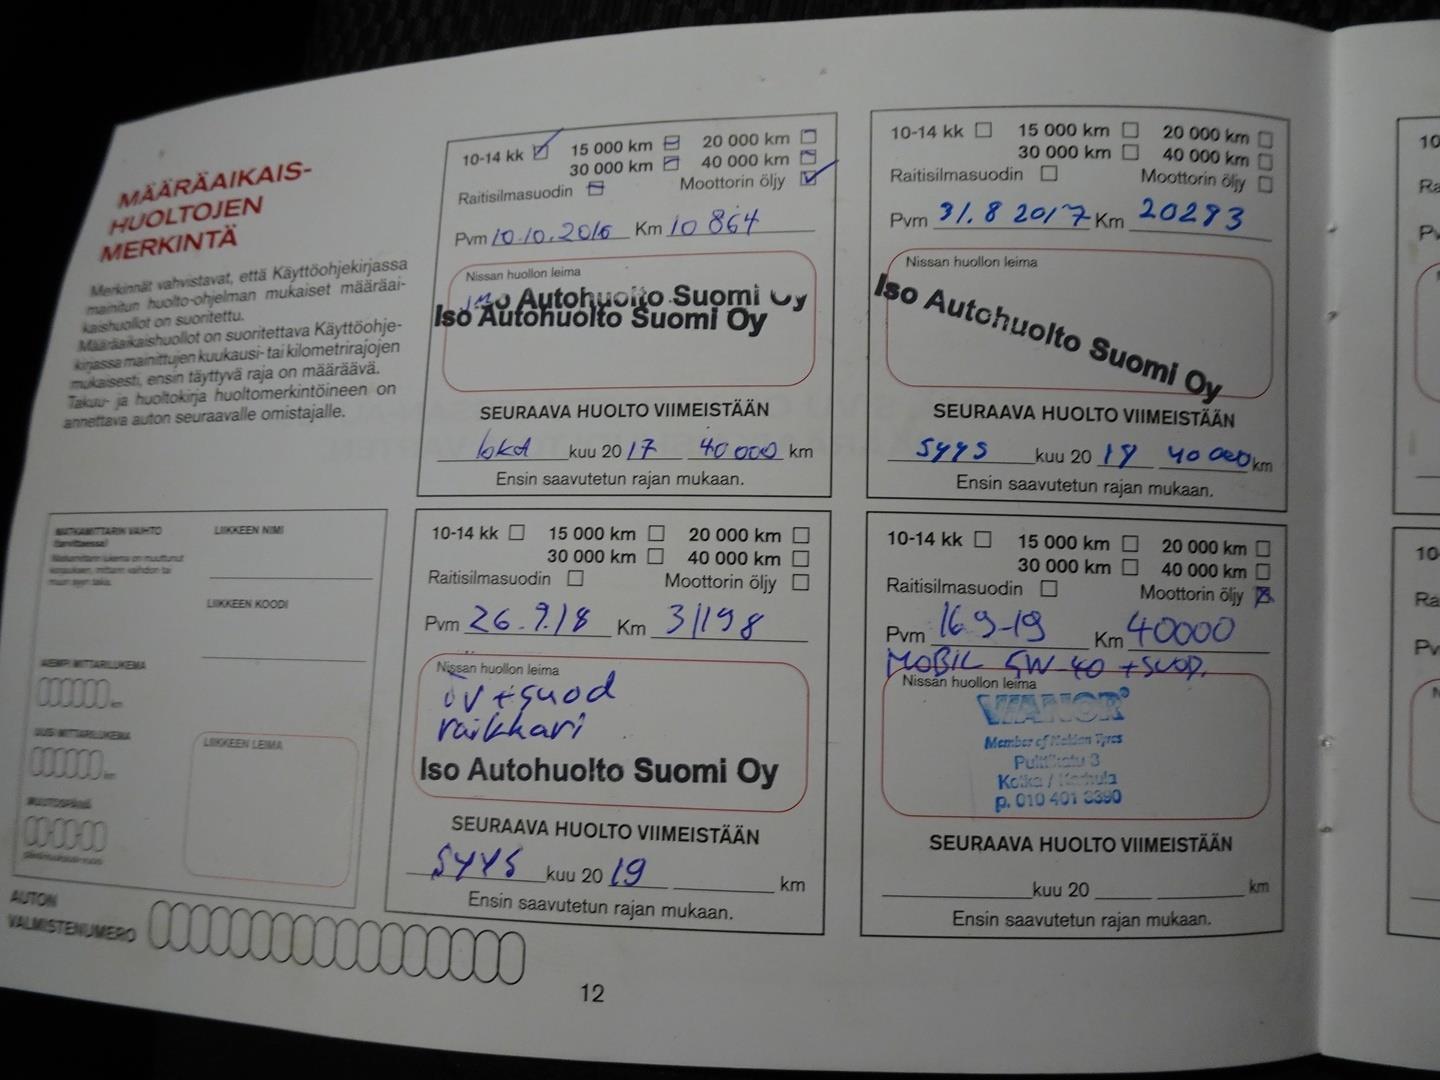 MÄÄRÄAIKAIS-
HUOLTOJEN
MERKINTÄ
Merkinnät vahvistavat, että Käyttöohjekirjassa
mainitun huolto-ohjelman mukaiset määräai-
kaishuollot on suoritettu.
Määräaikaishuollot on suoritettava Käyttöohje-
kirjassa mainittujen kuukausi- tai kilometrirajojen
mukaisesti, ensin täyttyvä raja on määräävä.
Takuu- ja huoltokirja huoltomerkintöineen on
annettava auton seuraavalle omistajalle.
10-14 kk 15 000 km 20 000 km
30 000 km 40 000 km
Raitisilmasuodin Moottorin öljy
Pvm 10.10.2016 Km 10 864
Nissan huollon leima
Iso Autohuolto Suomi Oy
Iso Autohuolto Suomi Oy
SEURAAVA HUOLTO VIIMEISTÄÄN
loka kuu 20 17 40 000 km
Ensin saavutetun rajan mukaan.
10-14 kk 15 000 km 20 000 km
30 000 km 40 000 km
Raitisilmasuodin Moottorin öljy
Pvm 31.8 2017 Km 20293
Nissan huollon leima
Iso Autohuolto Suomi Oy
SEURAAVA HUOLTO VIIMEISTÄÄN
SYYS kuu 20 18 40 000 km
Ensin saavutetun rajan mukaan.
MATKAMITTARIN VAIHTO
(tarvittaessa)
LIIKKEEN NIMI
LIIKKEEN KOODI
AIEMPI MITTARILUKEMA
km
UUSI MITTARILUKEMA
km
MUUTOSPÄIVÄ
LIIKKEEN LEIMA
AUTON
VALMISTENUMERO
10-14 kk 15 000 km 20 000 km
30 000 km 40 000 km
Raitisilmasuodin Moottorin öljy
Pvm 26.9.18 Km 31198
Nissan huollon leima
öv + suod
raikkari
Iso Autohuolto Suomi Oy
SEURAAVA HUOLTO VIIMEISTÄÄN
SYYS kuu 20 19 km
Ensin saavutetun rajan mukaan.
10-14 kk 15 000 km 20 000 km
30 000 km 40 000 km
Raitisilmasuodin Moottorin öljy
Pvm 16 9-19 Km 40000
MOBIL 5W-40 + SUOD.
Nissan huollon leima
VIANOR
Member of Nokian Tyres
3
Kotka / Karhula
p. 010 401 3390
SEURAAVA HUOLTO VIIMEISTÄÄN
kuu 20 km
Ensin saavutetun rajan mukaan.
12